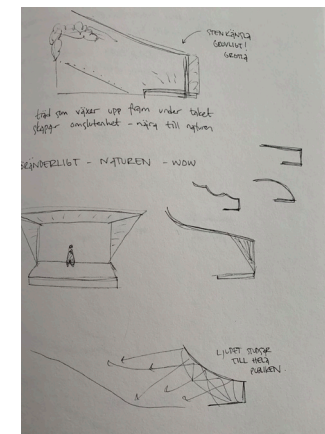 STENKÄNSLA
GROVLIGT!
GROTTA
träd som växer upp fram under taket
skapar omslutenhet - nära till naturen
FÖRÄNDERLIGT - NATUREN - WOW
LJUDET STUDSAR
TILL HELA
PUBLIKEN